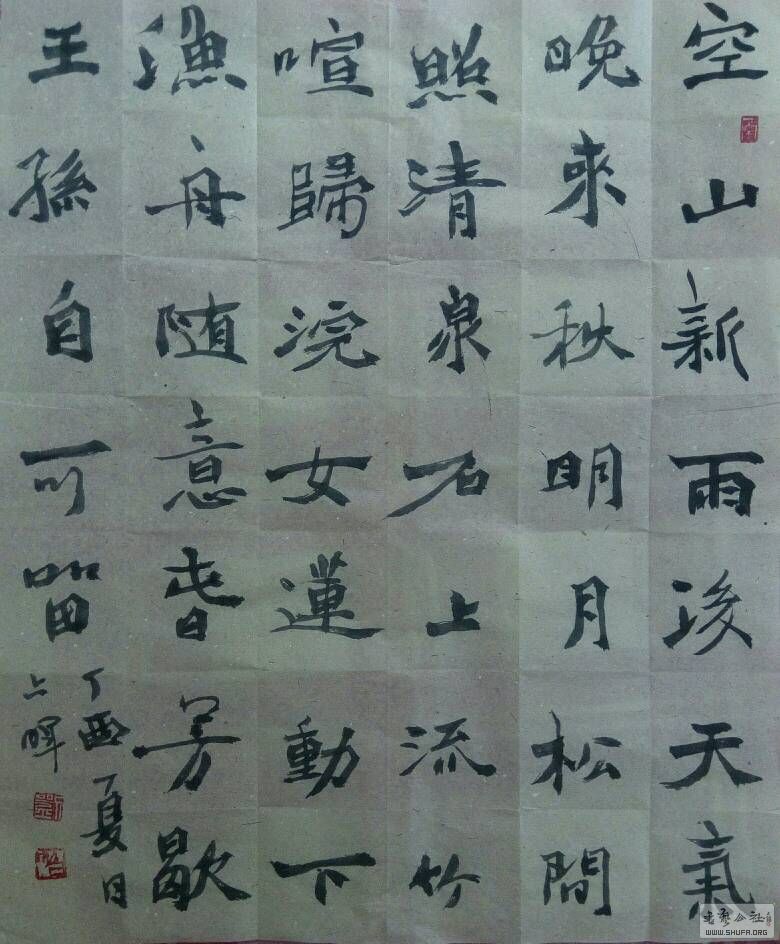 空山新雨後天氣
晚來秋明月松間
照清泉石上流竹
喧歸浣女蓮動下
漁舟随意春芳歇
王孫自可留
丁酉夏日
暉
书艺公社
WWW.SHUFA.ORG